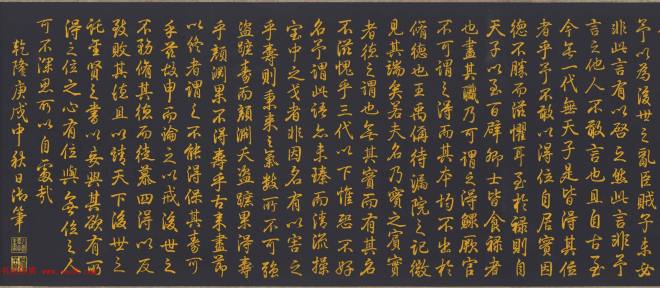 予以為後世之亂臣賊子未必
非此言有以啟之然此言非予
言之他人不敢言也且自古至
今無一代無天子是皆得其位
者乎予不敢以得位自居實因
德不勝而滋懼耳至於祿則自
天子以至百辟卿士皆食祿者
也盡其職乃可謂之得鰥厥官
不可謂之得而其本均不出於
脩德也王禹偁待漏院之記微
見其端矣若夫名乃實之賓實
者德之謂也無其實而有其名
不滋愧乎三代以下惟恐不好
名予謂此語亦未臻而清流操
室中之戈者非因名有以害之
乎壽則秉來之氣數所不可強
盜跖壽而顏淵夭盜跖果得壽
乎顏淵果不得壽乎古來盡節
以終者謂之不能得保其壽可
乎茲故申而論之以戒後世之
不務脩其德而徒慕四得以反
致敗其德且以天下後世之
託聖賢之言以妄興其欲有所
得之位之心有位與無位之人
可不深思所以自處哉
乾隆庚戌中秋日御筆